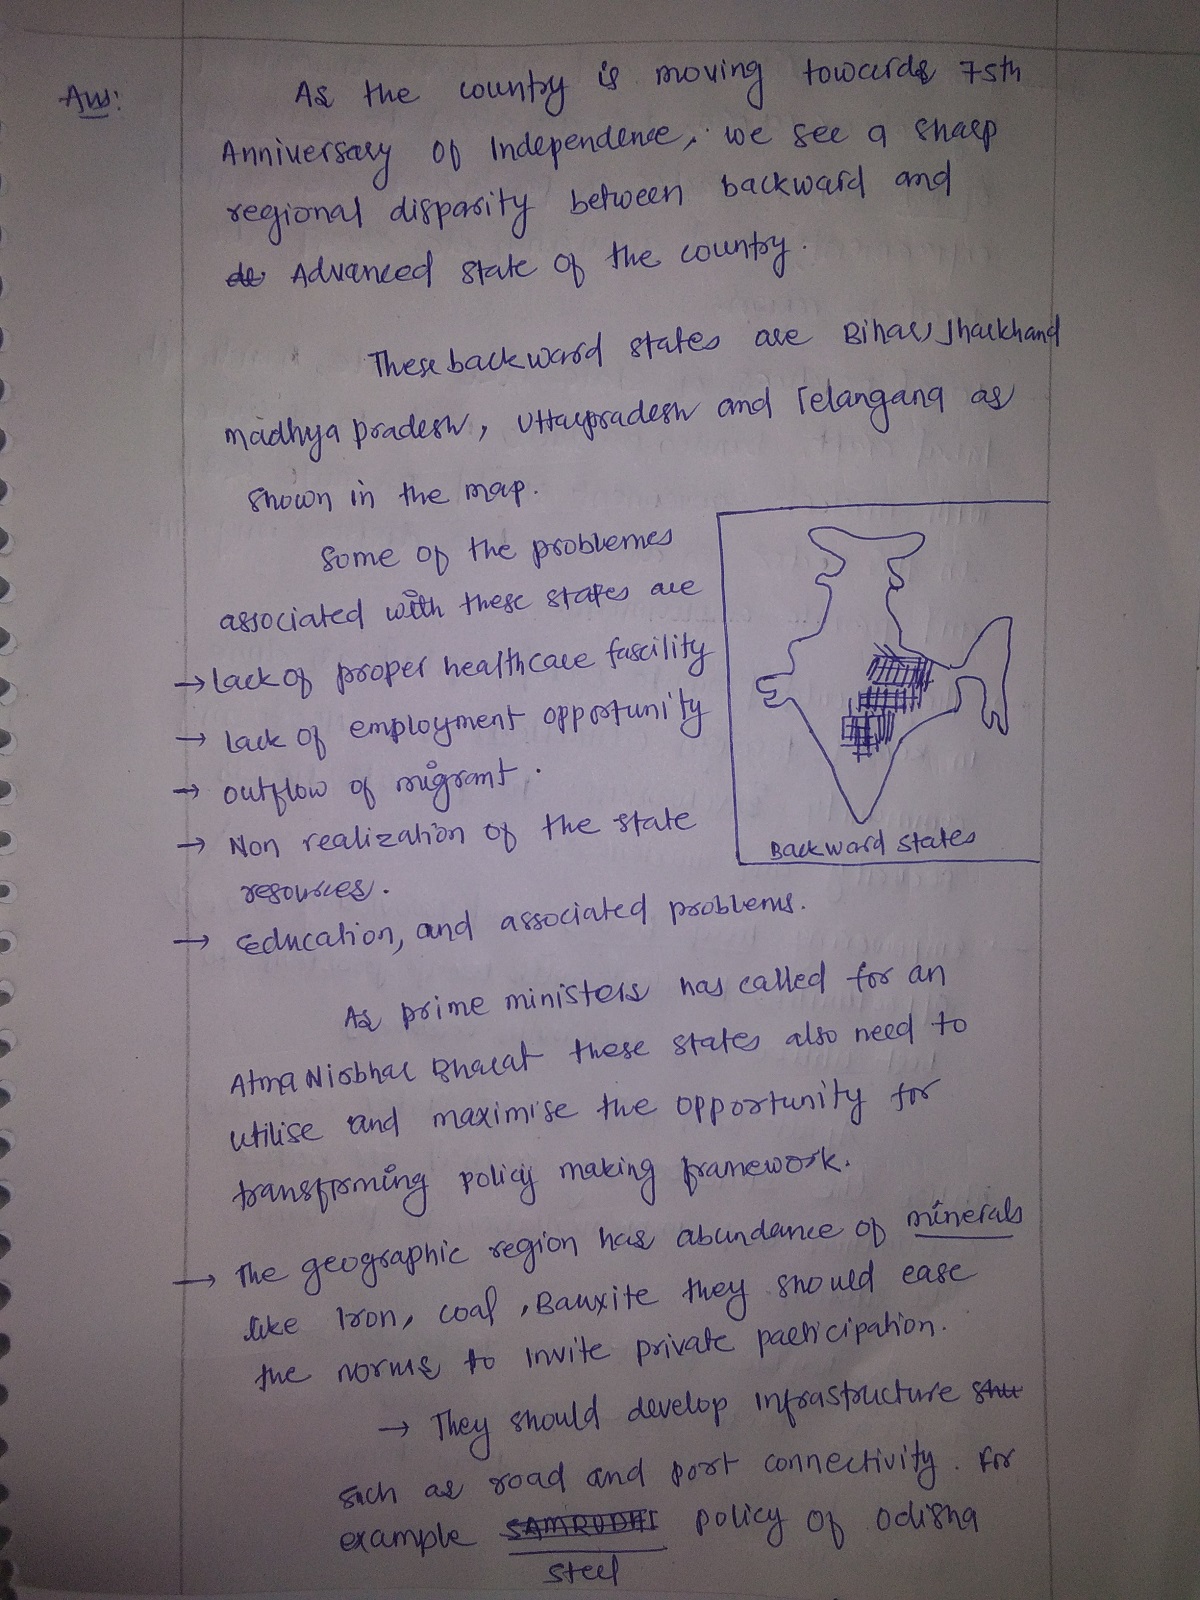 Ans:
As the country is moving towards 75th
Anniversary of Independence, we see a sharp
regional disparity between backward and
de Advanced state of the country.
These backward states are Bihar, Jharkhand
madhya pradesh, Uttarpradesh and Telangana as
shown in the map.
Some of the problemes
associated with these states are
→ Lack of proper healthcare fascility
→ Lack of employment opportunity
→ outflow of migrant.
→ Non realization of the state
resources.
Backward states
→ Education, and associated problems.
As prime ministers has called for an
Atma Nirbhar Bharat these states also need to
utilise and maximise the opportunity for
transforming policy making framework.
→ The geographic region has abundance of minerals
like Iron, coal, Bauxite they should ease
the norms to invite private participation.
→ They should develop infrastructure
such as road and port connectivity. For
example SAMRUDHI policy of odisha
steel